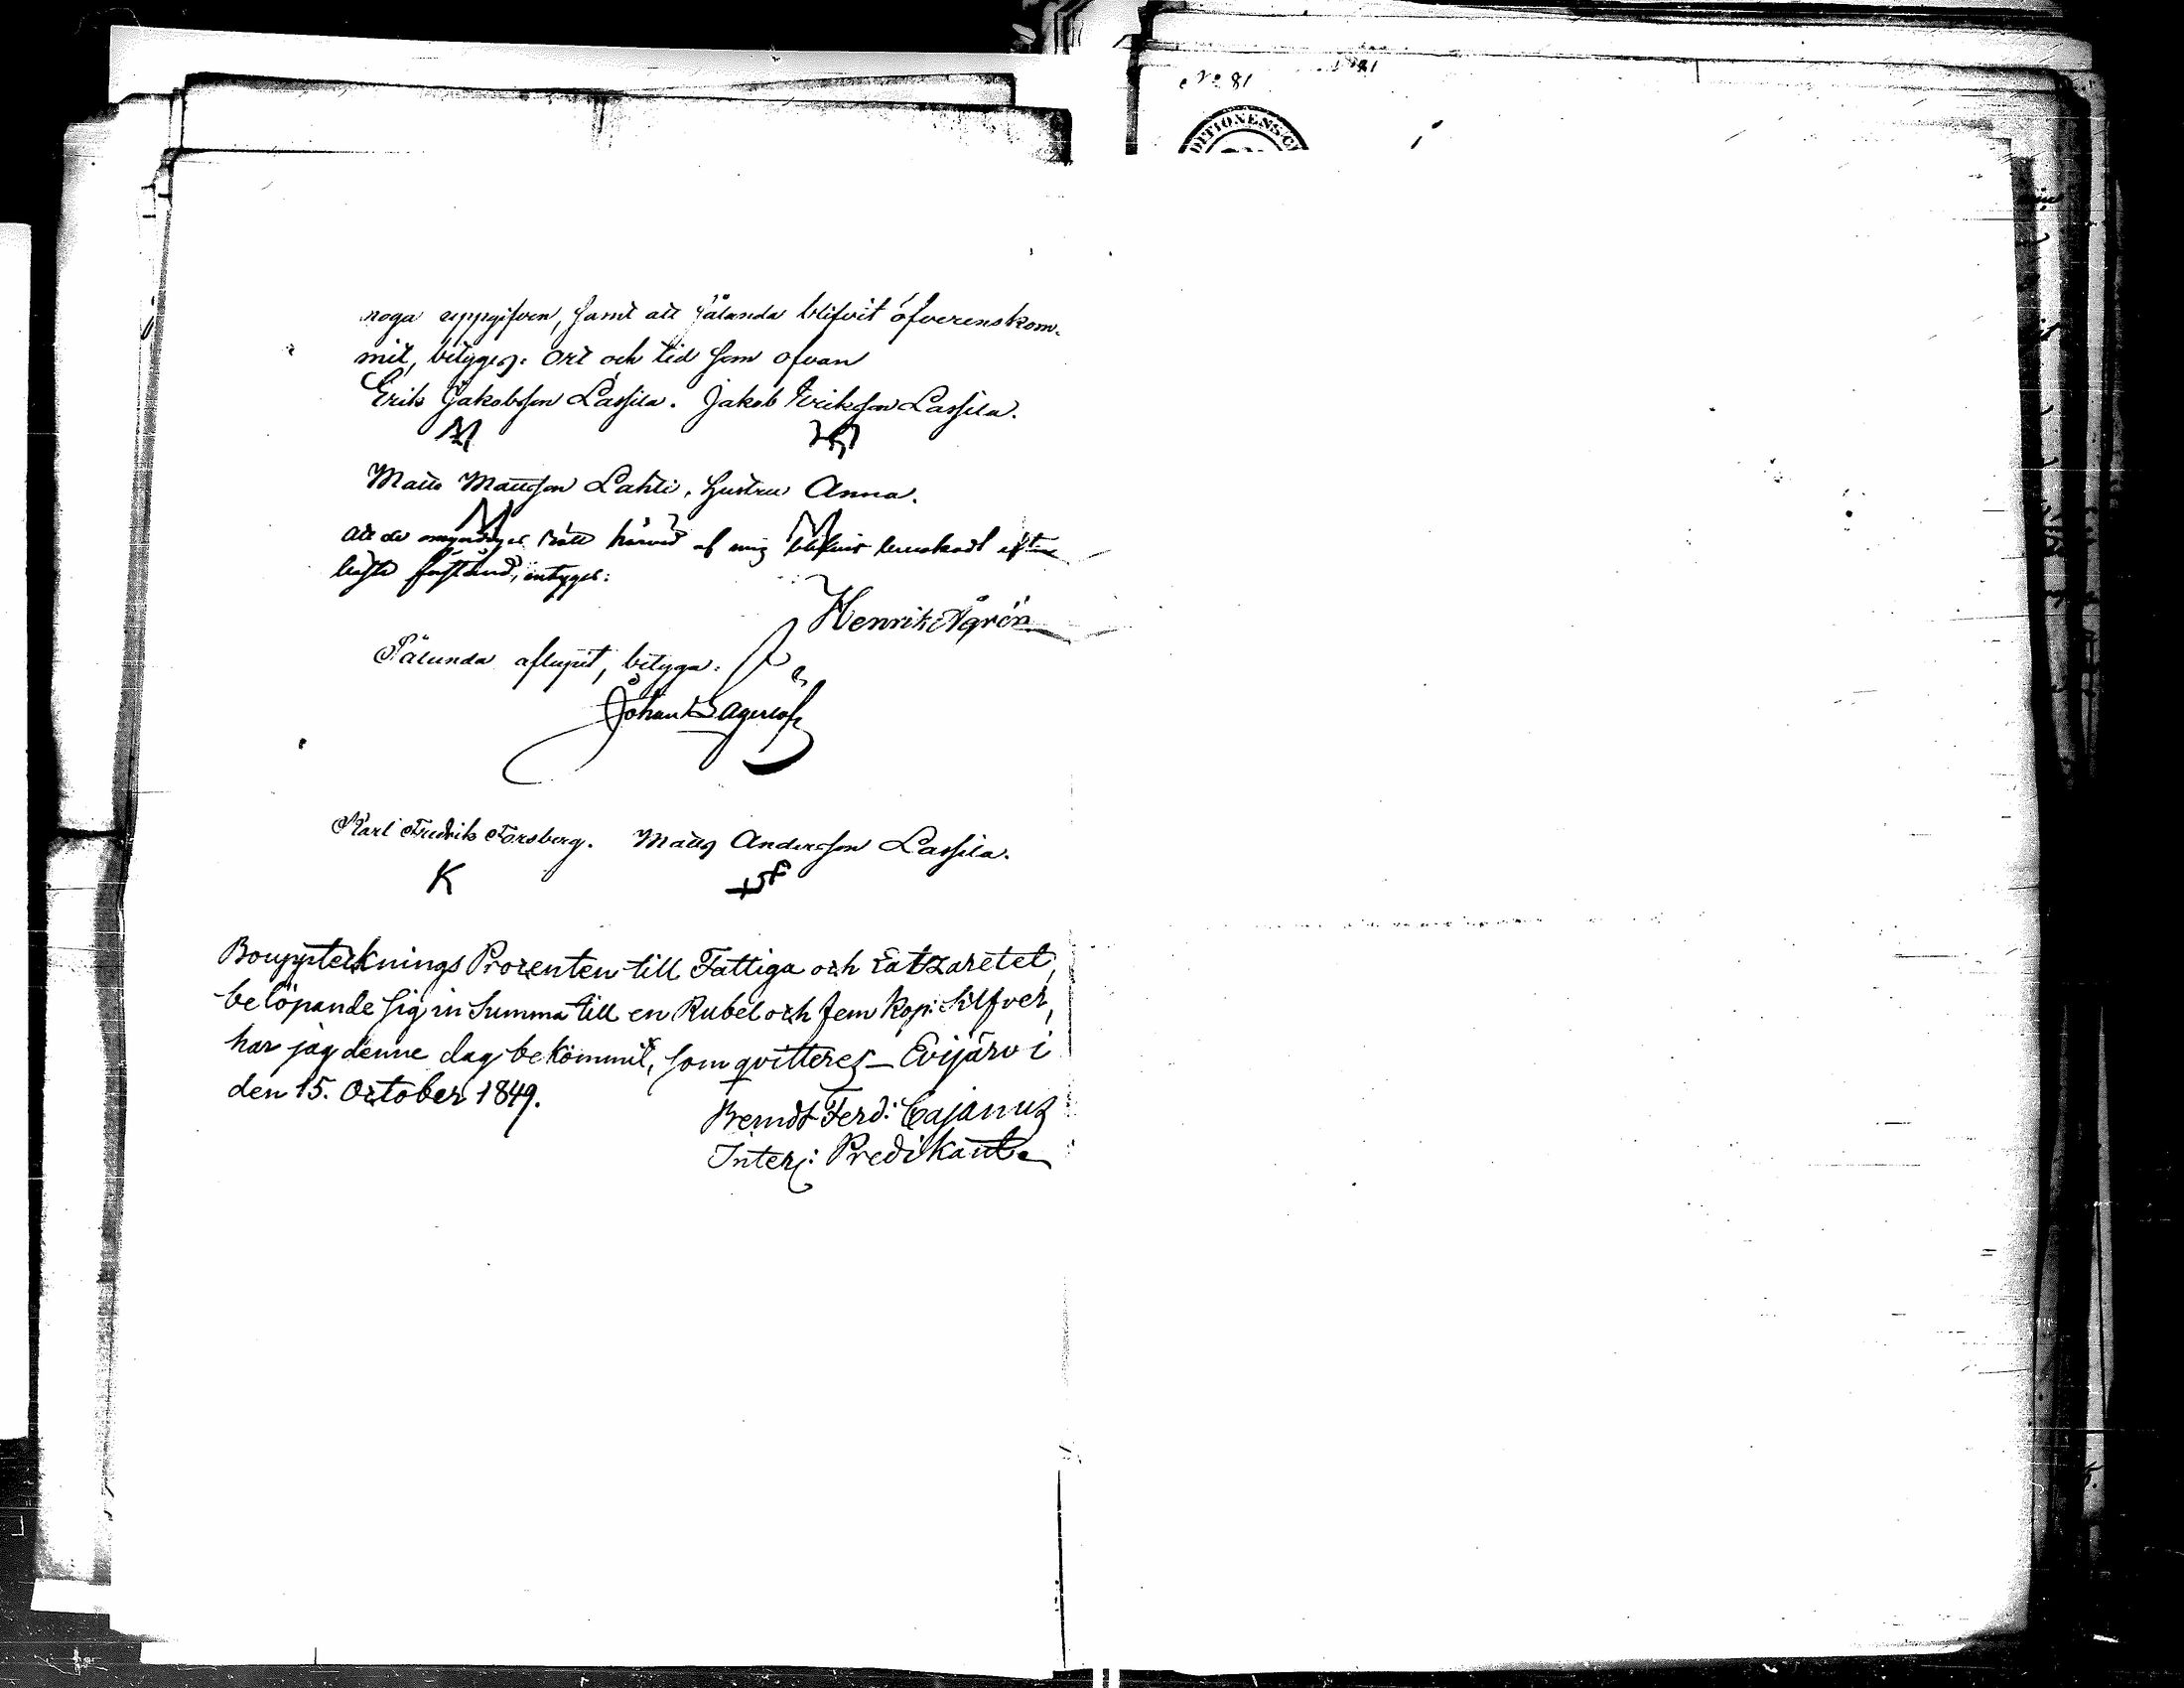 noga uppgifven, samt att sålunda blifvit öfverenskom-
mit, betyges. Ort och tid som ofvan
Erik Jakobsson Lassila. Jakob Eriksson Lassila.
Matts Mattsson Lahti, hustru Anna.
att de omyndiges rätt härvid af mig blifvit bevakadt efter
bästa förstånd, intygas:
Henrik Ågrén
Sålunda aflupit, betyga:
Johan Lagerlöf
Karl Fredrik Forsberg. Matts Andersson Lassila.
K
BouppteckningsProcenten till Fattiga och Latzaretet,
belöpande sig in Summa till en Rubel och fem Kop: Silfver,
har jag denne dag bekommit, som qvitteres _ Evijärvi
den 15. October 1849.
Berndt Ferd: Cajanus
Inter: Predikant.
No 81
DITIONENS C